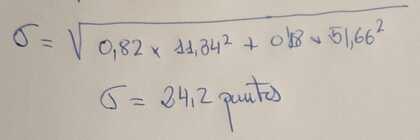 σ = √0,82 × 11,34² + 0,18 × 51,66²
σ = 24,2 puntos